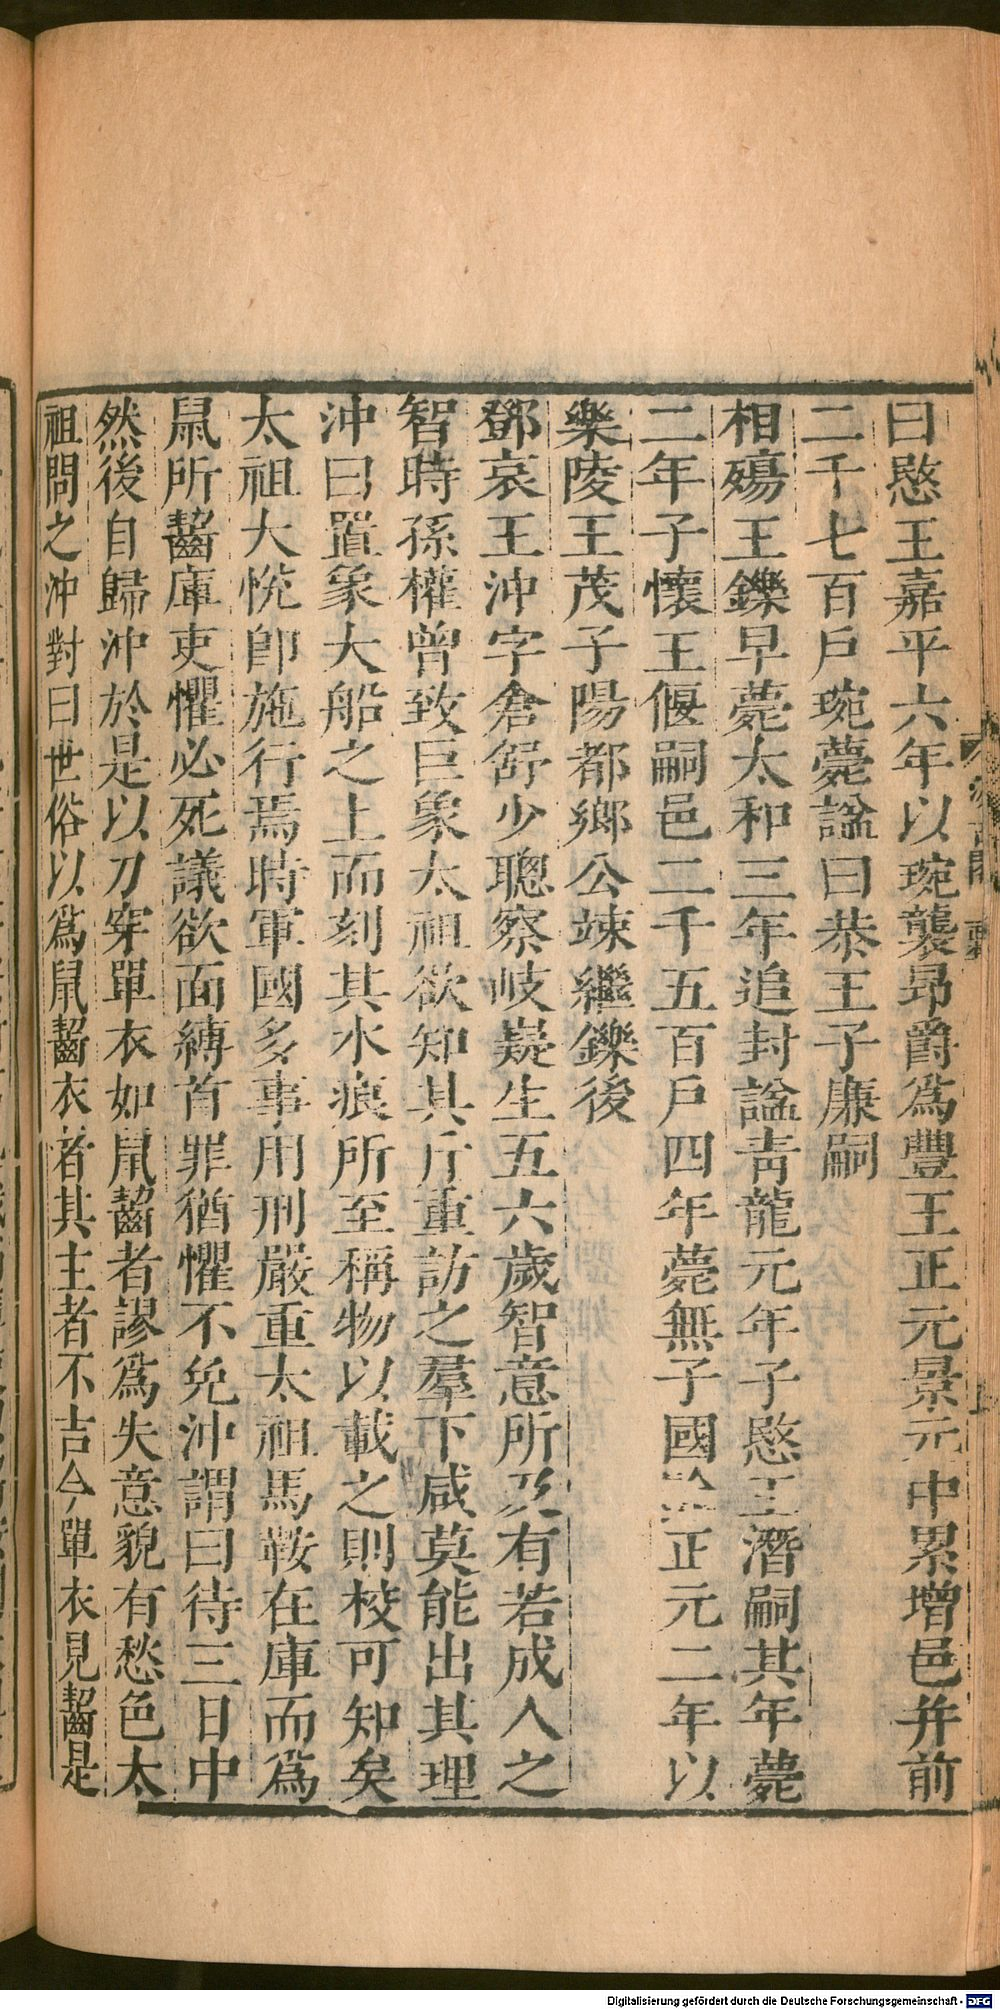 曰愍王嘉平六年以琬襲昻爵爲豐王正元景元中累增邑并前
二千七百戶琬薨諡曰恭王子廉嗣
相殤王鑠早薨太和三年追封諡靑龍元年子愍王潛嗣其年薨
二年子懷王偃嗣邑二千五百戶四年薨無子國正元二年以
樂陵王茂子陽都鄕公竦繼鑠後
鄧哀王沖字倉舒少聰察岐嶷生五六歲智意所及有若成人之
智時孫權曾致巨象太祖欲知其斤重訪之羣下咸莫能出其理
沖曰置象大船之上而刻其水痕所至稱物以載之則校可知矣
太祖大悅卽施行焉時軍國多事用刑嚴重太祖馬鞍在庫而爲
鼠所齧庫吏懼必死議欲面縛首罪猶懼不免沖謂曰待三日中
然後自歸沖於是以刀穿單衣如鼠齧者謬爲失意貌有愁色太
祖問之沖對曰世俗以爲鼠齧衣者其主者不吉今單衣見齧是
Digitalisierung gefördert durch die Deutsche Forschungsgemeinschaft - DFG